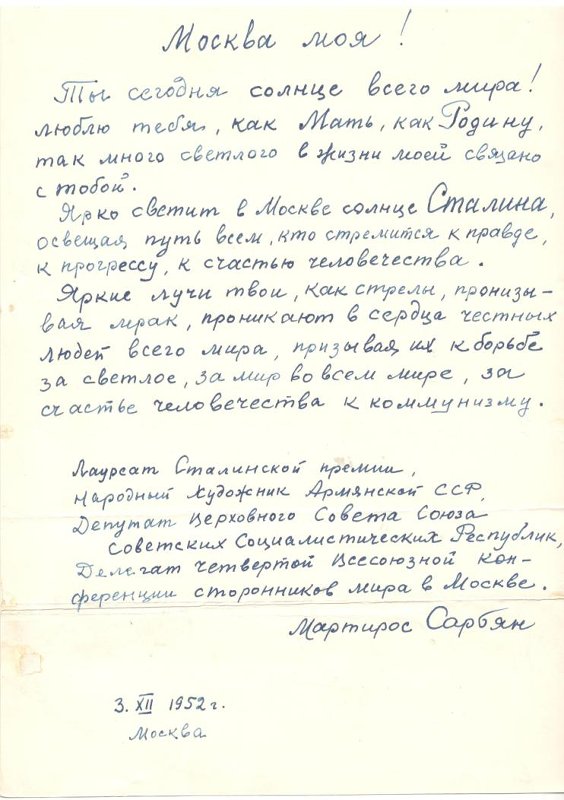 Москва моя!
Ты сегодня солнце всего мира!
люблю тебя, как Мать, как Родину,
так много светлого в жизни моей связано
с тобой.
Ярко светит в Москве солнце Сталина,
освещая путь всем, кто стремится к правде,
к прогрессу, к счастью человечества.
Яркие лучи твои, как стрелы, пронизы-
вая мрак, проникают в сердца честных
людей всего мира, призывая их к борьбе
за светлое, за мир во всем мире, за
счастье человечества к коммунизму.
Лауреат Сталинской премии,
Народный Художник Армянской ССР,
Депутат Верховного Совета Союза
Советских Социалистических Республик,
Делегат четвертой Всесоюзной кон-
ференции сторонников мира в Москве.
Мартирос Сарьян
3. XII 1952 г.
Москва